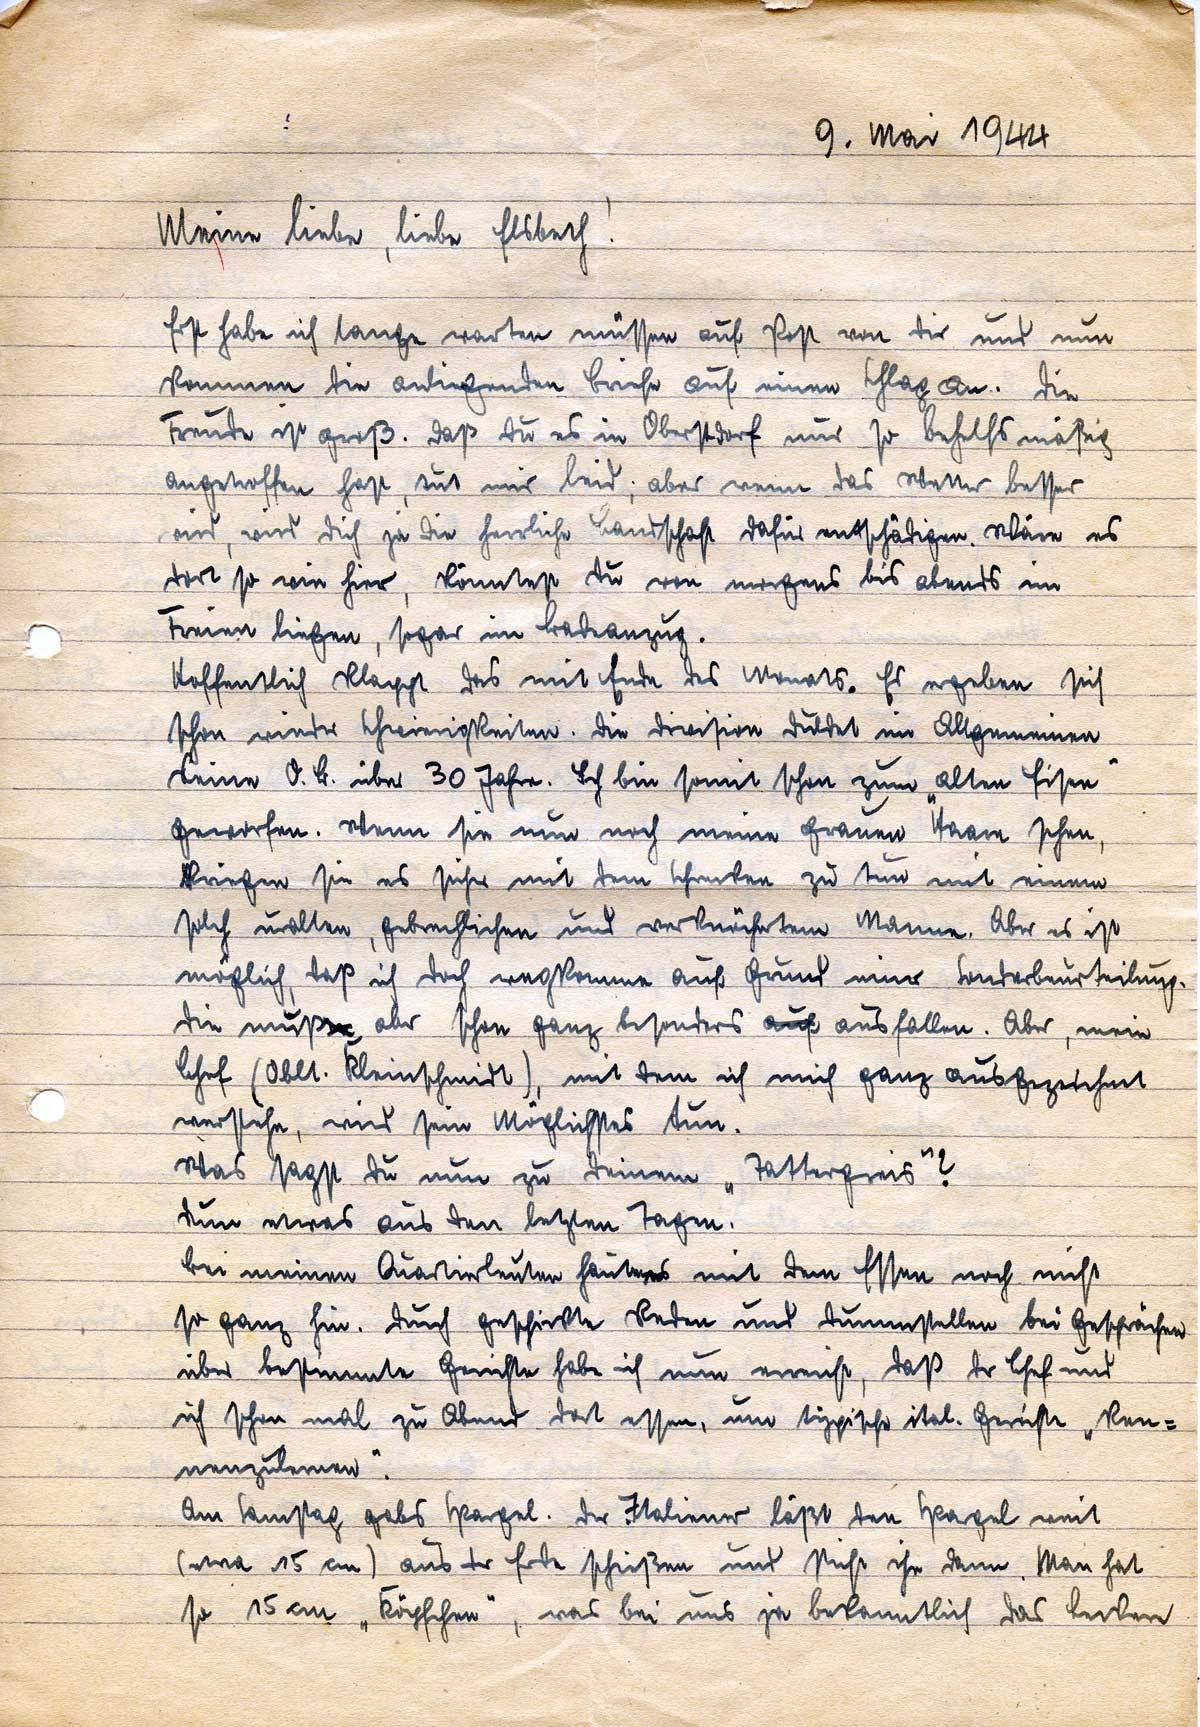 9. Mai 1944
Meine liebe, liebe Elsbeth!
Erst habe ich lange warten müssen auf Post von Dir und nun
kommen die anliegenden Briefe auf einen Schlag an. Die
Freude ist groß. Daß Du es in Oberstdorf nur so behelfsmäßig
angetroffen hast, tut mir leid; aber wenn das Wetter besser
wird, wird Dich ja die herrliche Landschaft dafür entschädigen. Wäre es
dort so wie hier, könntest Du von morgens bis abends im
Freien liegen, sogar im Badeanzug.
Hoffentlich klappt das mit Ende des Monats. Es ergeben sich
schon wieder Schwierigkeiten. Die Division duldet im Allgemeinen
keine O.B. über 30 Jahre. Ich bin somit schon zum „alten Eisen"
geworfen. Wenn sie nun noch meine grauen Haare sehen,
kriegen sie es sicher mit dem Schrecken zu tun mit einem
solch uralten, gebrechlichen und verknöchertem Manne. Aber es ist
möglich, daß ich doch wegkomme auf Grund einer Sonderbeurteilung.
Die muß aber schon ganz besonders auf ausfallen. Aber, mein
Chef (Oblt. Kleinschmidt), mit dem ich mich ganz ausgezeichnet
verstehe, wird sein Möglichstes tun.
Was sagst Du nun zu Deinem „Tattergreis"?
Nun etwas aus den letzten Tagen.
Bei meinen Quartierleuten haute es mit dem Essen noch nicht
so ganz hin. Durch geschickte Reden und Dummstellen bei Gesprächen
über bestimmte Gerichte habe ich nun erreicht, daß der Chef und
ich schon mal zu Abend dort essen, um typische ital. Gerichte „ken=
nenzulernen".
Am Samstag gabs Spargel. Der Italiener läßt den Spargel weit
(etwa 15 cm) aus der Erde schießen und sticht ihn dann. Man hat
so 15 cm „Köpfchen", was bei uns ja bekanntlich das leckere